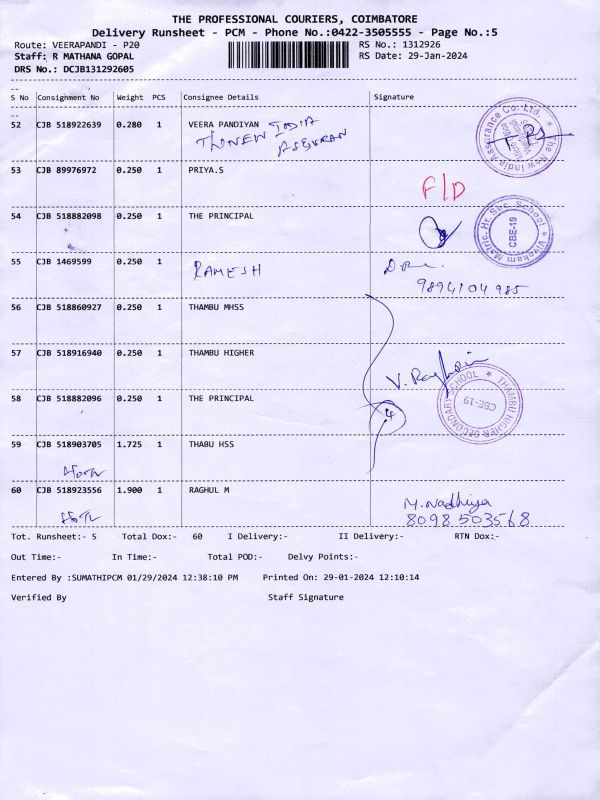 THE PROFESSIONAL COURIERS, COIMBATORE
Delivery Runsheet - PCM - Phone No.:0422-3505555 - Page No.:5
Route: VEERAPANDI - P20 RS No.: 1312926
Staff: R MATHANA GOPAL RS Date: 29-Jan-2024
DRS No.: DCJB131292605
S No Consignment No Weight PCS Consignee Details Signature
52 CJB 518922639 0.280 1 VEERA PANDIYAN
NEW INDIA
The New India Assurance Co. Ltd.
53 CJB 89976972 0.250 1 PRIYA.S
F/D
54 CJB 518882098 0.250 1 THE PRINCIPAL
Vivekam Matric. Hr. Sec. School
CBE-19
55 CJB 1469599 0.250 1 RAMESH
9894104985
56 CJB 518860927 0.250 1 THAMBU MHSS
57 CJB 518916940 0.250 1 THAMBU HIGHER
V. Raghu
58 CJB 518882096 0.250 1 THE PRINCIPAL
THAMBU HIGHER SECONDARY SCHOOL
CBE-19
59 CJB 518903705 1.725 1 THABU HSS
60 CJB 518923556 1.900 1 RAGHUL M
M. Nadhiya
8098503568
Tot. Runsheet:- 5 Total Dox:- 60 I Delivery:- II Delivery:- RTN Dox:-
Out Time:- In Time:- Total POD:- Delvy Points:-
Entered By :SUMATHIPCM 01/29/2024 12:38:10 PM Printed On: 29-01-2024 12:10:14
Verified By Staff Signature